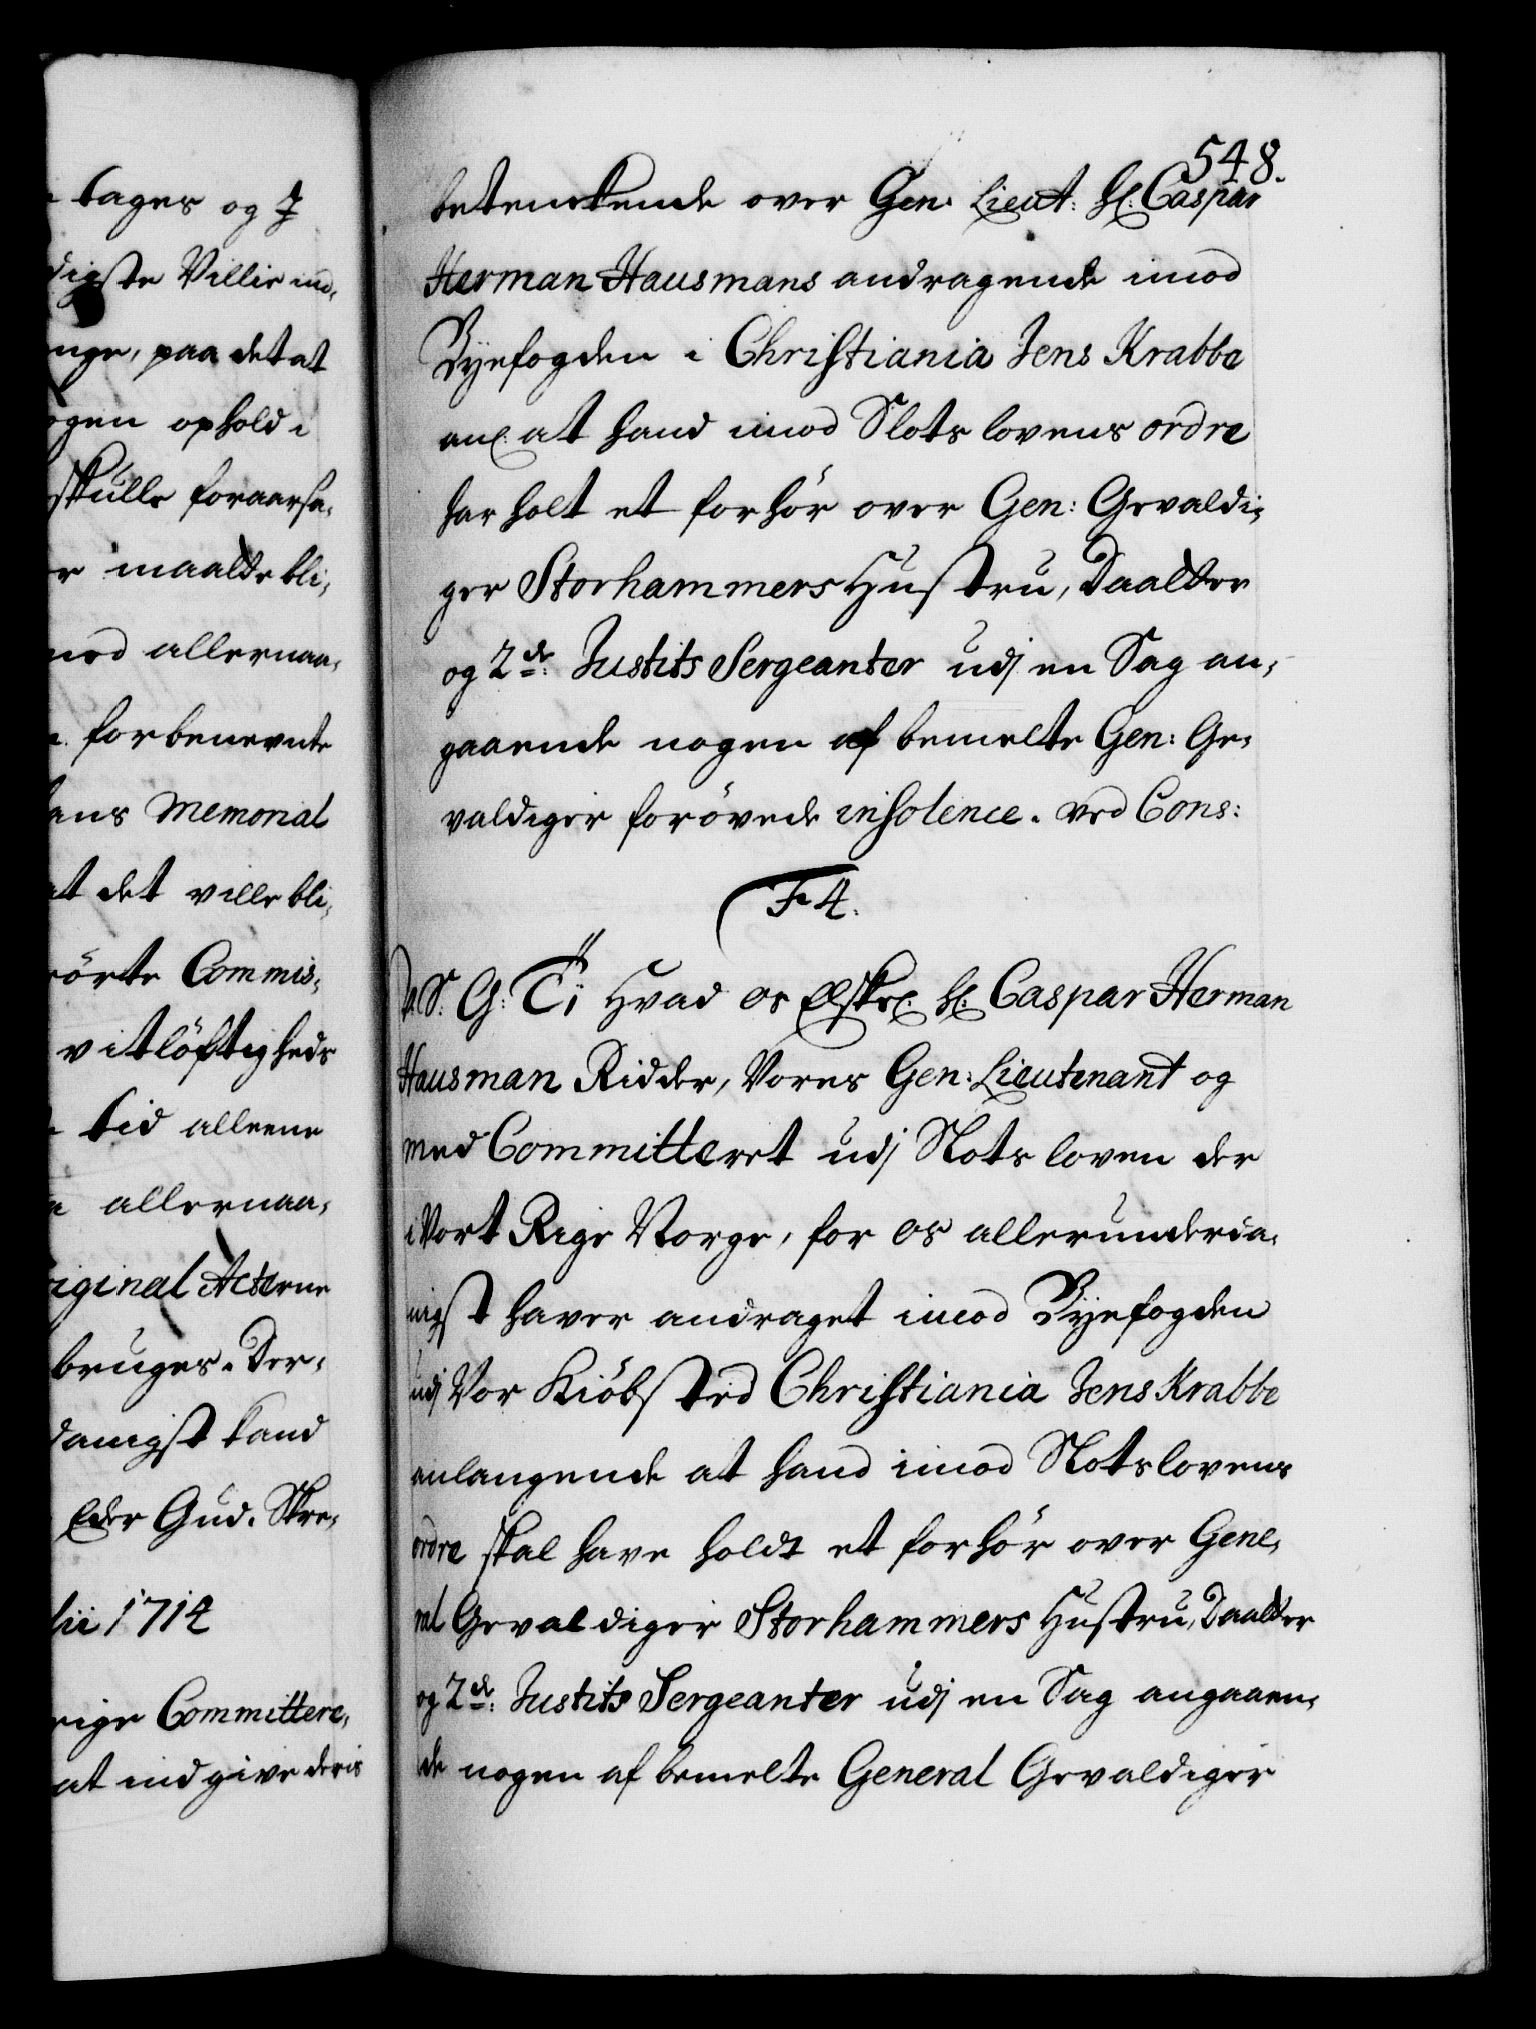 tages og J
digste Villie ind,
enge, paa det at
ogen ophold i
skulle foraarsa,
maaltte bli,
med allernaa,
forbenevnte
hans Memorial
at det ville bli,
rörte Commis,
vitlöftigheds
tid alleene
allernaa,
riginal Acterne
bruges. Der,
danigst kand
Eder Gud. Skre,
lii 1714
rige Committere,
at indgive deris
548.
betenckende over Gen: Lieut: Hr: Caspar
Herman Hausmans andragende imod
Byefogden i Christiania Jens Krabbe
anl: at hand imod Slots lovens ordre
har holt et forhör over Gen: Gevaldi,
ger Storhammers Hustru, Daatter
og 2de: Justits Sergeanter udj en Sag an,
gaaende nogen af bemelte Gen: Ge,
valdiger forövede insolence. ved Cons:
F 4.
V. S. G: T: Hvad os Elskel: Hr: Caspar Herman
Hausman Ridder, Vores Gen: Lieutenant og
med Committeret udj Slots loven der
i Vort Rige Norge, for os allerunderda,
nigst haver andraget imod Byefogden
udj Vor Kiöbsted Christiania Jens Krabbe
anlangende at hand imod Slotslovens
ordre skal have holdt et forhör over Gene,
ral Gevaldiger Storhammers Hustru, Daatter
og 2de: Justits Sergeanter udj en Sag angaaen,
de nogen af bemelte General Gevaldiger